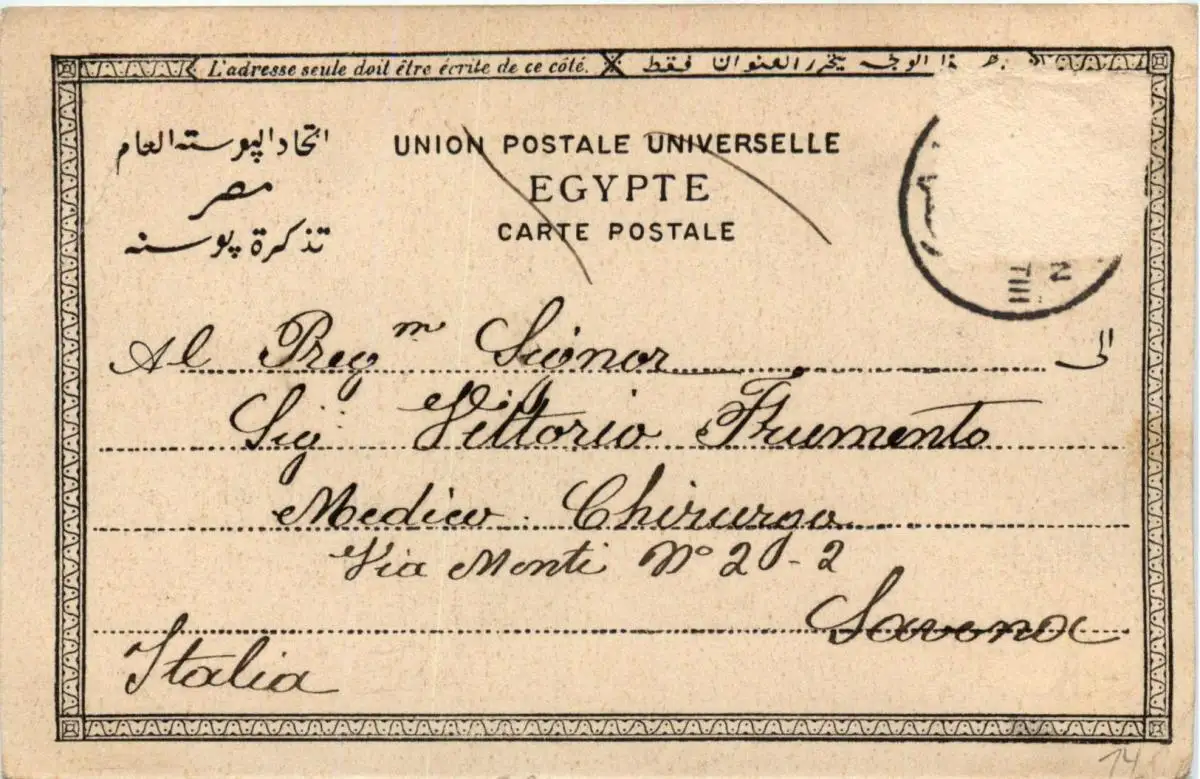 L'adresse seule doit être écrite de ce côté. الوجه يحرر العنوان فقط
اتحاد البوسته العام
مصر
تذكرة بوسته
UNION POSTALE UNIVERSELLE
EGYPTE
CARTE POSTALE
N
TIII
الى
Al Preg.m Signor
Sig. Vittorio Frumento
Medico Chirurgo
Via Monti N° 20-2
Savona
Italia
14